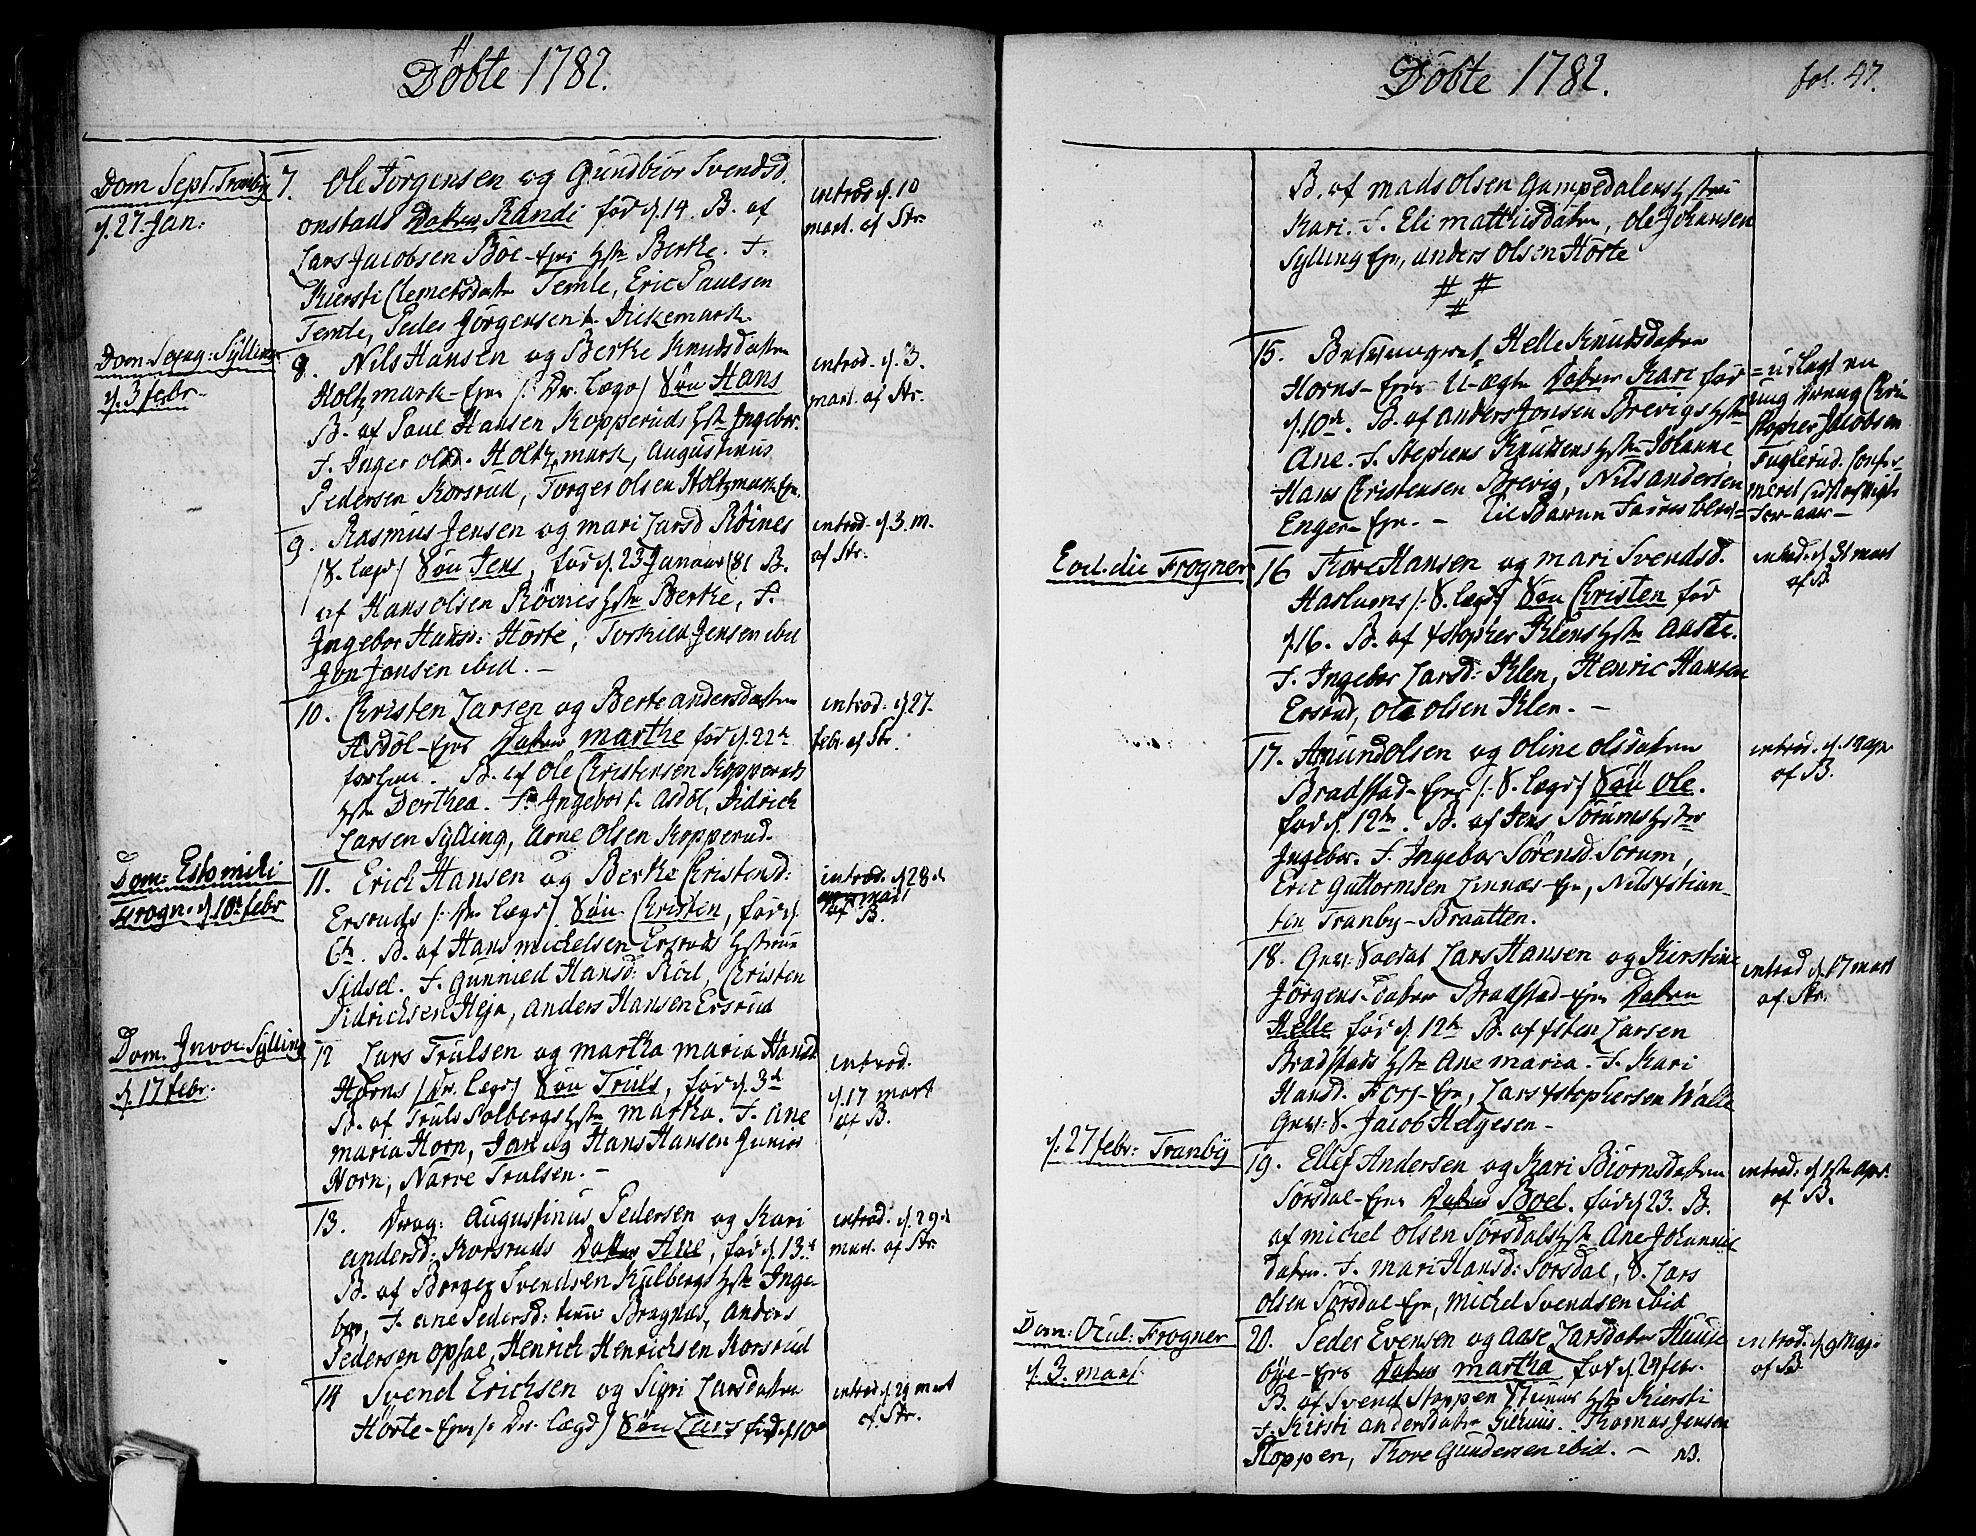 Döbte 1782.
Dom Sept. Tranby
d. 27 Jan:
7. Ole Jörgensen og Gunbiör Svendsd.
onstads Datter Randi före d. 14. B. af
Lars Jacobsen Böe-Eyer Hstr Berthe. F.
Kiersti Clemetsdatr Temle, Eric Paulsen
Temle, Peder Jörgensen Dickemark.
introd d. 10
mart. af Str.
Dom. Sexag: Sylling
d. 3 febr.
8. Nils Hansen og Berthe Knudsdatter
Holtzmark-Eyer /: Dr. lægd / Sön Hans
B. af Poul Hansen Kopperuds Hstr Ingebor.
F. Inger olsd. Holtzmark, Augustinus
Pedersen Korsrud, Torger olsen Holtzmark Eyer.
introd. d. 3.
mart. af Str.
9. Rasmus Jensen og mari Larsd Röines
/ S. lægd / Sön Jens, föd d. 23 Januar 81 B.
af Hans olsen Röines Hstr Berthe, F.
Ingebor Hansd: Hörte, Torkild Jensen ibid
Jon Jonsen ibid. –
introd. d. 3. m.
af Str.
10. Christen Larsen og Berte andersdatter
Asdöl-Eyer Datter marthe föd d. 22
B. af Ole Christensen Kopperuds
Hstr Dorthea. F. Ingebor Asdöl, Didrich
Larsen Sylling, Arne Olsen Kopperud.
introd. d. 27.
febr. af Str.
Dom: Esto mihi
Frogn. d. 10 febr
11. Erich Hansen og Berthe Christensd:
Ersruds /: Dr. lægd / Sön Christen, föd d.
6te. B. af Hans michelsen Ersruds Hstrue
Sidsel. F. Gunnild Hansd: Röd, Christen
Didrichsen Heje, anders Hansen Ersrud
introd. d. 28 d
af B.
Dom. Invoc. Sylling
d. 17 febr.
12 Lars Trulsen og martha maria Hansd
Horns / Dr. lægd / Sön Truls, föd d. 3d
B. af Truls Solbergs Hstr martha. F. Ane
maria Horn, Jan og Hans Hansen Junior
Horn, Narve Trulsen. –
introd.
d. 17 mart
af B.
13. Drag: Augustinus Pedersen og Kari
andersd: Korsruds Datter Ane, föd d. 13.
B. af Borger Svendsen Kjulbergs Hstr Inge-
bor, F. ane Pedersd: Bragnæs, Anders
Pedersen opsal, Henrich Henrichsen Korsrud
introd. d. 29 d
mart. af Str.
14 Svend Erichsen og Sigri Larsdatter
Hörte-Eyer /: Dr. lægd / Sön Lars föd d 10de
introd d 29 mart
af Str.
Döbte 1782.
fol. 47.
B. af mads olsen Gampedalens Hstrue
Kari. F. Eli matthisdatter, Ole Johansen
Sylling Eyer, anders olsen Hörte
# #
#
15. Helle Knudsdatter
Horns-Eyer U-ægte Datter Kari föd
d. 10de. B. af anders Jonsen Brevigs Hstr
Ane. F. Stephens Knudsens Hstr Johanne
Hans Christensen Brevig, Nils andersen
Enger-Eyer. – Til Barnefader blev =
= udlagt en
ung Dreng Chri
stopher Jacobsen
Fuglerud. Confir
meret sidstafvigte
For-aar –
Eod. die Frogner
16 Tore Hansen og mari Svendsd.
Haslums /: S. lægd / Sön Christen föd
d. 16. B. af Xstopher Klens Hstr Aaste.
F. Ingebor Larsd: Klen, Henric Hansen
Ersrud, Ole olsen Klen. –
introd. d. 31 mart
af B.
17. Amund olsen og oline olsdatter
Bradstad-Eyer /: S. lægd / Sön Ole.
föd d. 12te. B. af Jens Sörums Hstr
Ingebor. F. Ingebor Sörensd. Sorum,
Eric Guttormsen Linnæs-Eyer, Nils Xstian-
sen Tranby-Braatten.
introd. d. 12 apr.
af B.
18. Gev: Soldat Lars Hansen og Kirstine
Jörgens-Datter Bradstad-Eyer Datter
Helle föd d. 12te B. af Xsten Larsen
Bradstads Hstr Ane maria. F. Kari
Hansd. Foss-Eyer, Lars Xstophersen Walle
Gev: S. Jacob Helgesen –
introd d. 17 mart
af Str.
d. 27 febr: Tranby
19. Ellef Andersen og Kari Biörnsdatter
Sörsdal-Eyer Datter Boel. föd d 23. B.
af michel olsen Sörsdals Hstr Ane Johannis
datter. F. mari Hansd: Sorsdal, S. Lars
olsen Sorsdal-Eyer, michel Svendsen ibid
introd. d 1ste Apr.
af B.
Dom: Ocul: Frogner
d. 3. mart.
20. Peder Evensen og Aase Larsdatter Huuse
bye-Eyer Datter martha föd d. 24 febr.
B. af Svend Stoppen Hstr Kiersti
F. Kirsti andersdatr Thomas Jensen
Stoppen, Thore Gundersen ibid. –
NB.
introd. d 9 Maj.
af B